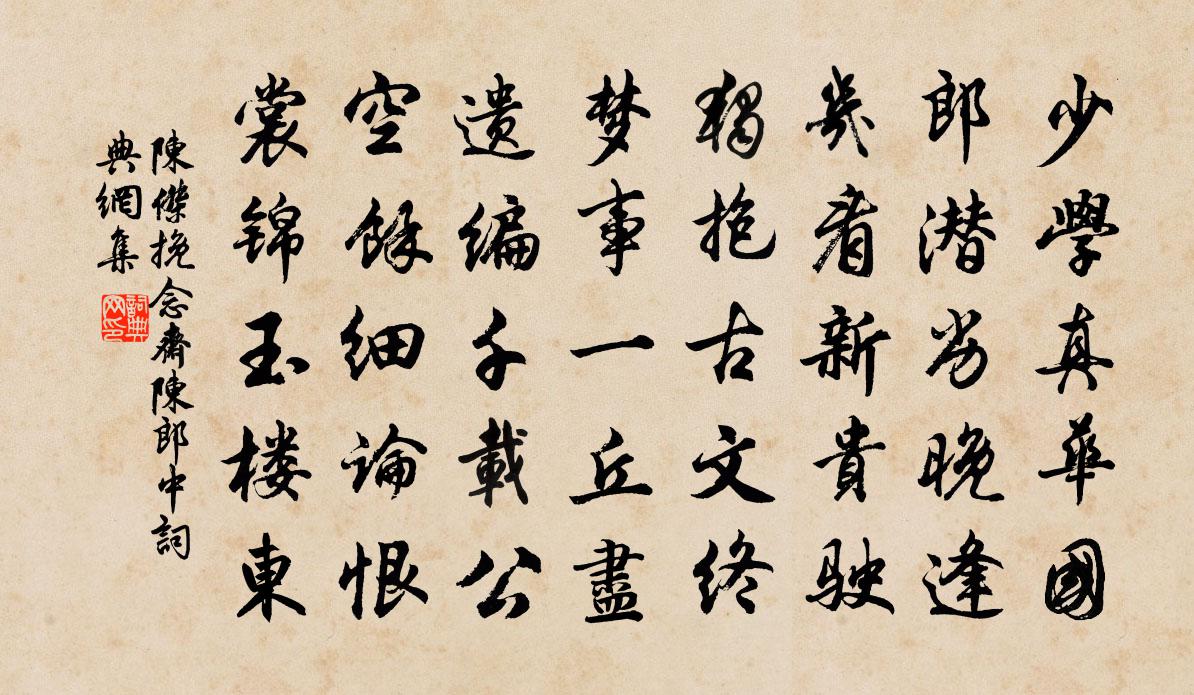 少學真華國
郎潜劣晚逢
幾看新貴駛
獨抱古文終
梦事一丘盡
遗编千載公
空餘细論恨
裳锦玉楼東
陳傑挽念齋陳郎中詞
典網集
詞典網印